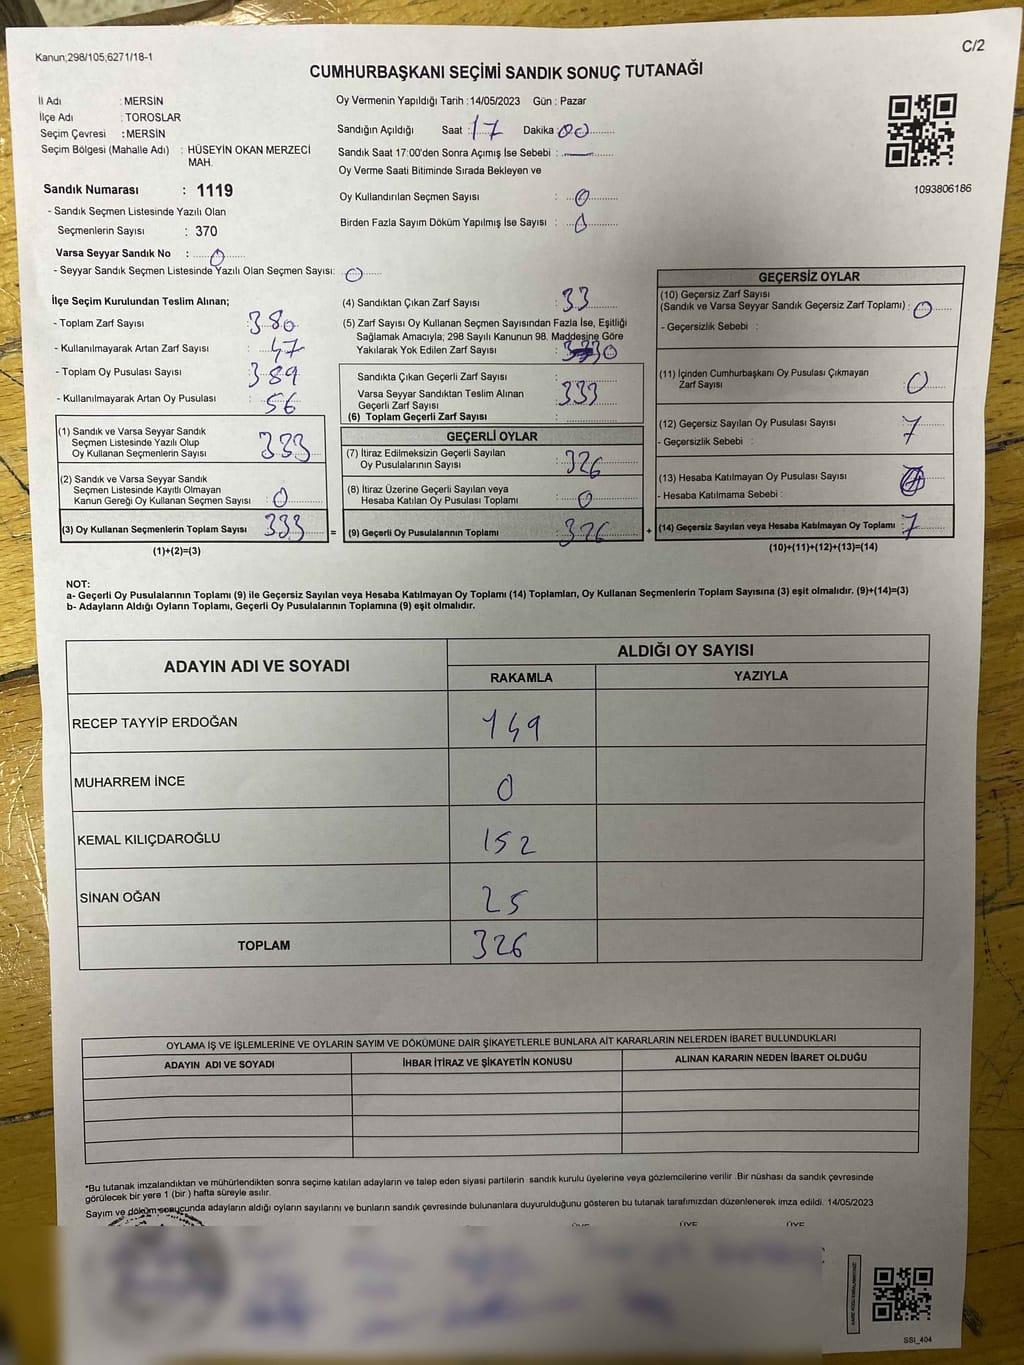 Kanun;298/105;6271/18-1
C/2
CUMHURBAŞKANI SEÇİMİ SANDIK SONUÇ TUTANAĞI
İl Adı : MERSİN
İlçe Adı : TOROSLAR
Seçim Çevresi : MERSİN
Seçim Bölgesi (Mahalle Adı) : HÜSEYİN OKAN MERZECİ
MAH.
Sandık Numarası : 1119
- Sandık Seçmen Listesinde Yazılı Olan
Seçmenlerin Sayısı : 370
Varsa Seyyar Sandık No : 0
- Seyyar Sandık Seçmen Listesinde Yazılı Olan Seçmen Sayısı: 0
Oy Vermenin Yapıldığı Tarih : 14/05/2023 Gün : Pazar
Sandığın Açıldığı Saat : 17 Dakika : 00
Sandık Saat 17:00'den Sonra Açımış İse Sebebi : —
Oy Verme Saati Bitiminde Sırada Bekleyen ve
Oy Kullandırılan Seçmen Sayısı : 0
Birden Fazla Sayım Döküm Yapılmış İse Sayısı : 0
1093806186
İlçe Seçim Kurulundan Teslim Alınan;
- Toplam Zarf Sayısı : 380
- Kullanılmayarak Artan Zarf Sayısı : 47
- Toplam Oy Pusulası Sayısı : 389
- Kullanılmayarak Artan Oy Pusulası : 56
(1) Sandık ve Varsa Seyyar Sandık
Seçmen Listesinde Yazılı Olup
Oy Kullanan Seçmenlerin Sayısı : 333
(2) Sandık ve Varsa Seyyar Sandık
Seçmen Listesinde Kayıtlı Olmayan
Kanun Gereği Oy Kullanan Seçmen Sayısı : 0
(3) Oy Kullanan Seçmenlerin Toplam Sayısı : 333 =
(1)+(2)=(3)
(4) Sandıktan Çıkan Zarf Sayısı : 33
(5) Zarf Sayısı Oy Kullanan Seçmen Sayısından Fazla İse, Eşitliği
Sağlamak Amacıyla; 298 Sayılı Kanunun 98. Maddesine Göre
Yakılarak Yok Edilen Zarf Sayısı : 0
Sandıkta Çıkan Geçerli Zarf Sayısı : 333
Varsa Seyyar Sandıktan Teslim Alınan
Geçerli Zarf Sayısı
(6) Toplam Geçerli Zarf Sayısı :
GEÇERLİ OYLAR
(7) İtiraz Edilmeksizin Geçerli Sayılan
Oy Pusulalarının Sayısı : 326
(8) İtiraz Üzerine Geçerli Sayılan veya
Hesaba Katılan Oy Pusulası Toplamı : 0
(9) Geçerli Oy Pusulalarının Toplamı : 326 +
GEÇERSİZ OYLAR
(10) Geçersiz Zarf Sayısı
(Sandık ve Varsa Seyyar Sandık Geçersiz Zarf Toplamı) : 0
- Geçersizlik Sebebi :
(11) İçinden Cumhurbaşkanı Oy Pusulası Çıkmayan
Zarf Sayısı : 0
(12) Geçersiz Sayılan Oy Pusulası Sayısı : 7
- Geçersizlik Sebebi :
(13) Hesaba Katılmayan Oy Pusulası Sayısı :
- Hesaba Katılmama Sebebi :
(14) Geçersiz Sayılan veya Hesaba Katılmayan Oy Toplamı : 7
(10)+(11)+(12)+(13)=(14)
NOT:
a- Geçerli Oy Pusulalarının Toplamı (9) ile Geçersiz Sayılan veya Hesaba Katılmayan Oy Toplamı (14) Toplamları, Oy Kullanan Seçmenlerin Toplam Sayısına (3) eşit olmalıdır. (9)+(14)=(3)
b- Adayların Aldığı Oyların Toplamı, Geçerli Oy Pusulalarının Toplamına (9) eşit olmalıdır.
ADAYIN ADI VE SOYADI
ALDIĞI OY SAYISI
RAKAMLA YAZIYLA
RECEP TAYYİP ERDOĞAN 149
MUHARREM İNCE 0
KEMAL KILIÇDAROĞLU 152
SİNAN OĞAN 25
TOPLAM 326
OYLAMA İŞ VE İŞLEMLERİNE VE OYLARIN SAYIM VE DÖKÜMÜNE DAİR ŞİKAYETLERLE BUNLARA AİT KARARLARIN NELERDEN İBARET BULUNDUKLARI
ADAYIN ADI VE SOYADI İHBAR İTİRAZ VE ŞİKAYETİN KONUSU ALINAN KARARIN NEDEN İBARET OLDUĞU
*Bu tutanak imzalandıktan ve mühürlendikten sonra seçime katılan adayların ve talep eden siyasi partilerin sandık kurulu üyelerine veya gözlemcilerine verilir .Bir nüshası da sandık çevresinde
görülecek bir yere 1 (bir ) hafta süreyle asılır.
Sayım ve döküm sonucunda adayların aldığı oyların sayılarını ve bunların sandık çevresinde bulunanlara duyurulduğunu gösteren bu tutanak tarafımızdan düzenlenerek imza edildi. 14/05/2023
ÜYE ÜYE ÜYE
SSI_404